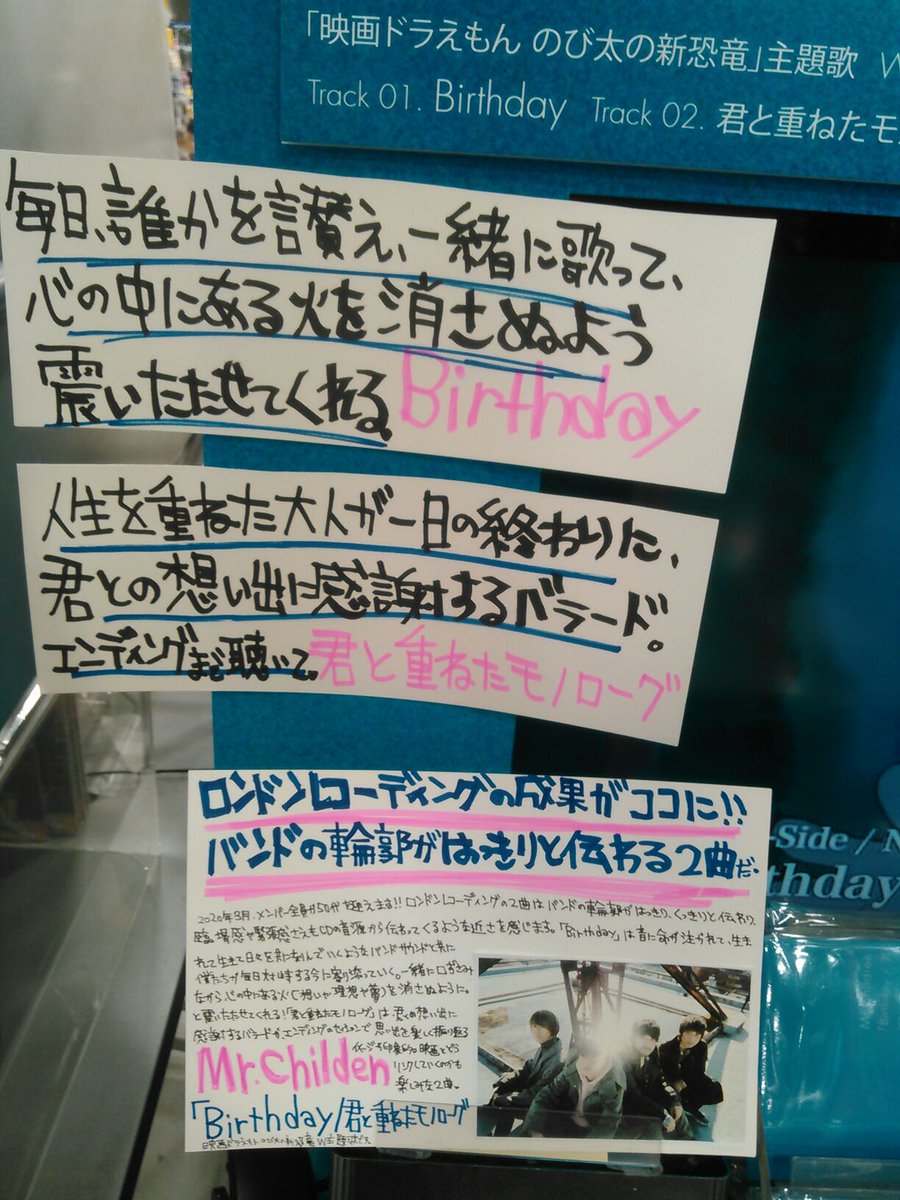 「映画ドラえもん のび太の新恐竜」主題歌 W
Track 01. Birthday Track 02. 君と重ねたモ
毎日、誰かを讃え、一緒に歌って、
心の中にある火を消さぬよう
震いたたせてくれる。Birthday
人生を重ねた大人が一日の終わりに、
君との想い出に感謝するバラード。
エンディングまで聴いて。君と重ねたモノローグ
ロンドンレコーディングの成果がココに!!
バンドの輪郭がはっきりと伝わる2曲だ。
2020年3月、メンバー全員が50代を迎えます!! ロンドンレコーディングの2曲はバンドの輪郭がはっきり、くっきりと伝わり、
臨場感や緊張感さえもCDの音源から伝わってくるような近さを感じます。「Birthday」は音に命が注がれて、生ま
れて生きて日々を
バンドサウンドと共に
僕たちが毎日対峙する今に寄り添っていく。一緒に口ずさみ
ながら心の中にある火(想いや理想や夢)を消さぬように。
と奮いたたせてくれる!「君と重ねたモノローグ」は君との想い出に
感謝するバラードが、エンディングのセッションで思い出を楽しく振り返る
映画とどう
リンクしていくのかも
楽しみな2曲。
Mr.Childen
「Birthday/君と重ねたモノローグ
映画ドラえもん のび太の新恐竜 W主題歌です
-Side / N
thday